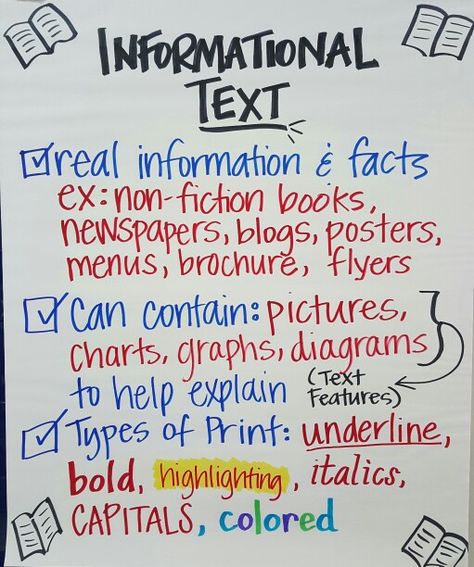 INFORMATIONAL
TEXT
real information & facts
ex: non-fiction books,
newspapers, blogs, posters,
menus, brochure, flyers
Can contain: pictures,
charts, graphs, diagrams
to help explain (Text
Features)
Types of Print: underline,
bold, highlighting, italics,
CAPITALS, colored